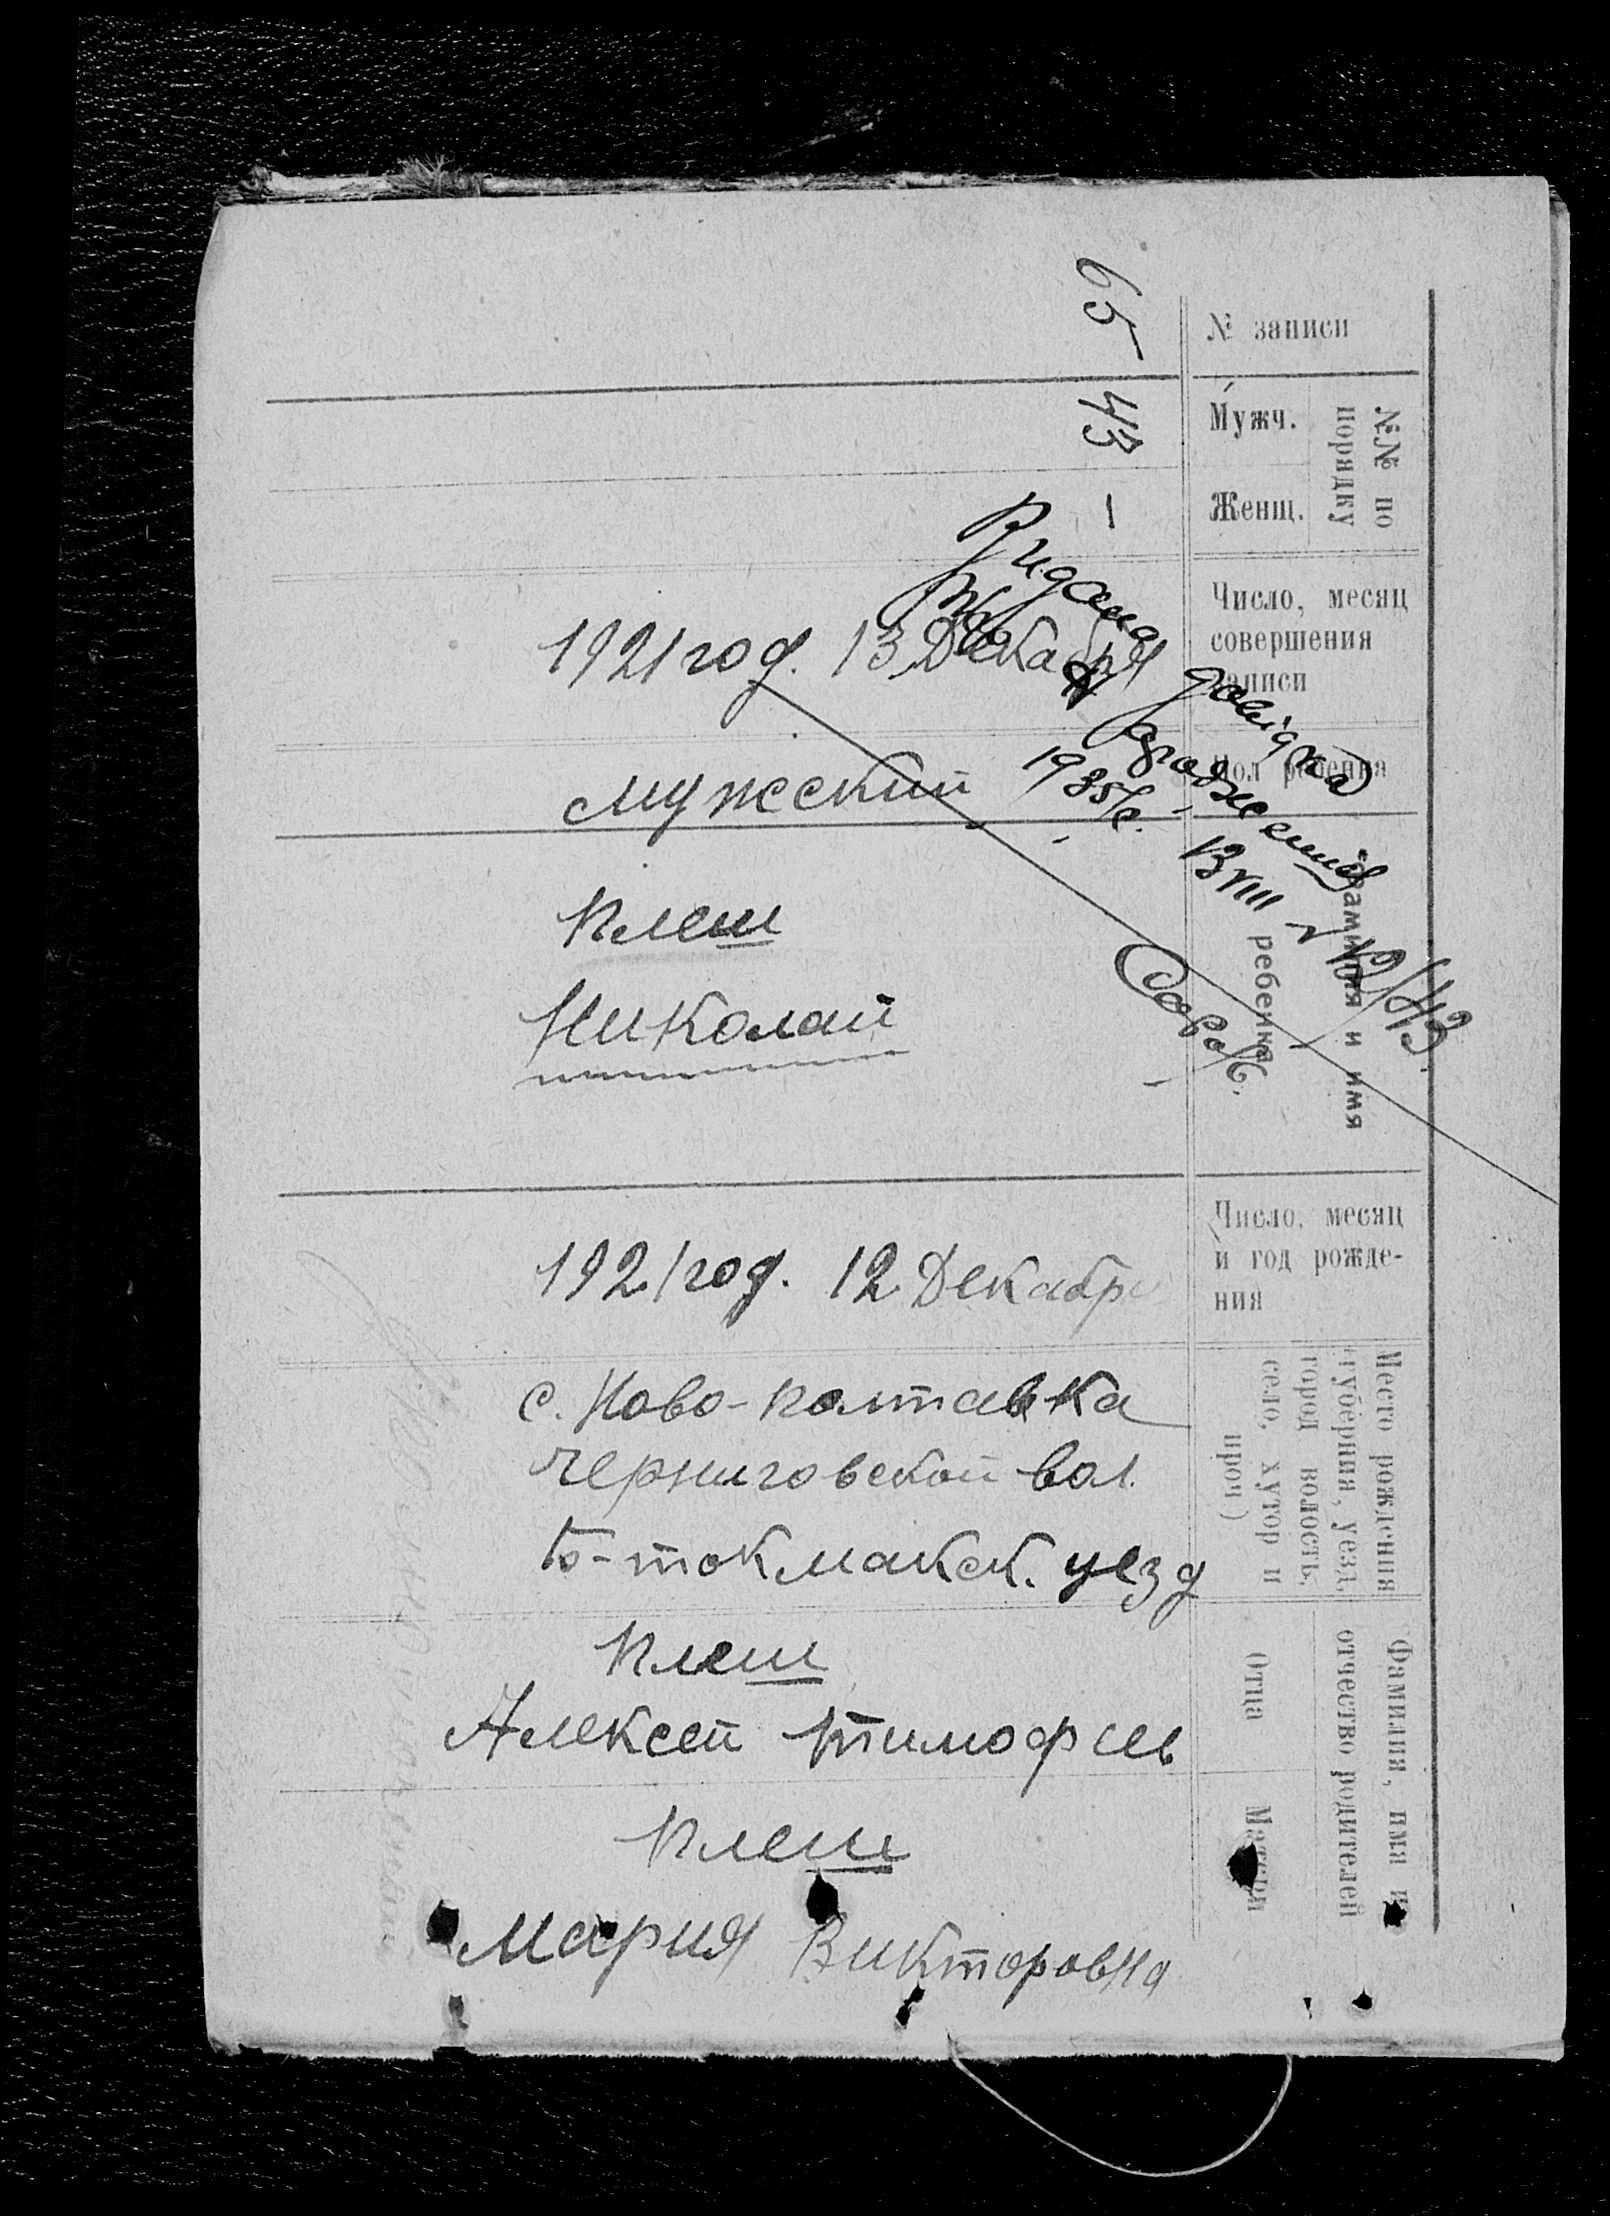 № записи
65
№№ по
порядку
Мужч.
43
Женщ.
–
Число, месяц
совершения
записи
1921 год. 13 Декабря
Пол ребенка
мужский
Фамилия и имя
ребенка
Плеш
Николай
Видана довідка
про народження
1935 р. ВІІІ
Число, месяц
и год рожде-
ния
1921 год. 12 Декабр
Место рождения
(губерния, уезд,
город волость,
село, хутор и
проч)
с. Ново-Полтавка
Черниговской вол.
Б-токмакск. уезд
Фамилия, имя и
отчество родителей
Отца
Плеш
Алексей Тимофеев
Матери
Плеш
Мария Викторовна